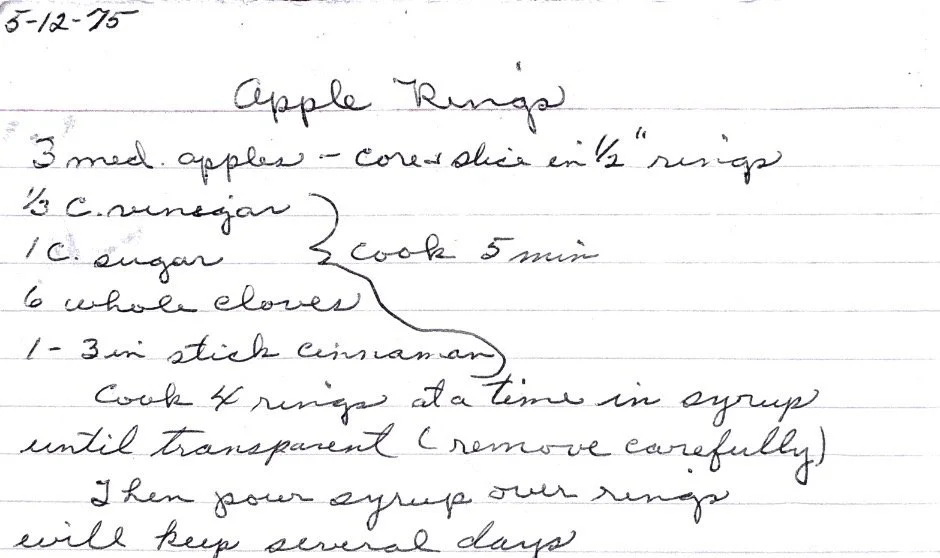 5-12-75
Apple Rings
3 med. apples - core & slice in 1/2" rings
1/3 C. vinegar
1 C. sugar } cook 5 min
6 whole cloves
1 - 3 in stick cinnaman
Cook 4 rings at a time in syrup
until transparent (remove carefully)
Then pour syrup over rings
will keep several days